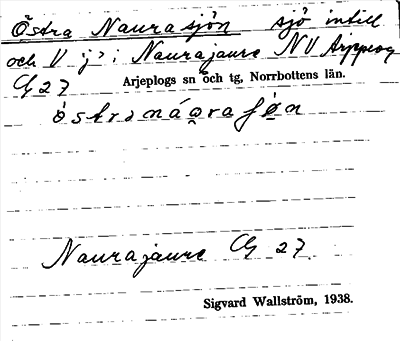 Östra Naurasjön sjö intill
och V j> i Naurajaure NV Arjeplog
G 27
Arjeplogs sn och tg, Norrbottens län.
Naurajaure G 27
Sigvard Wallström, 1938.